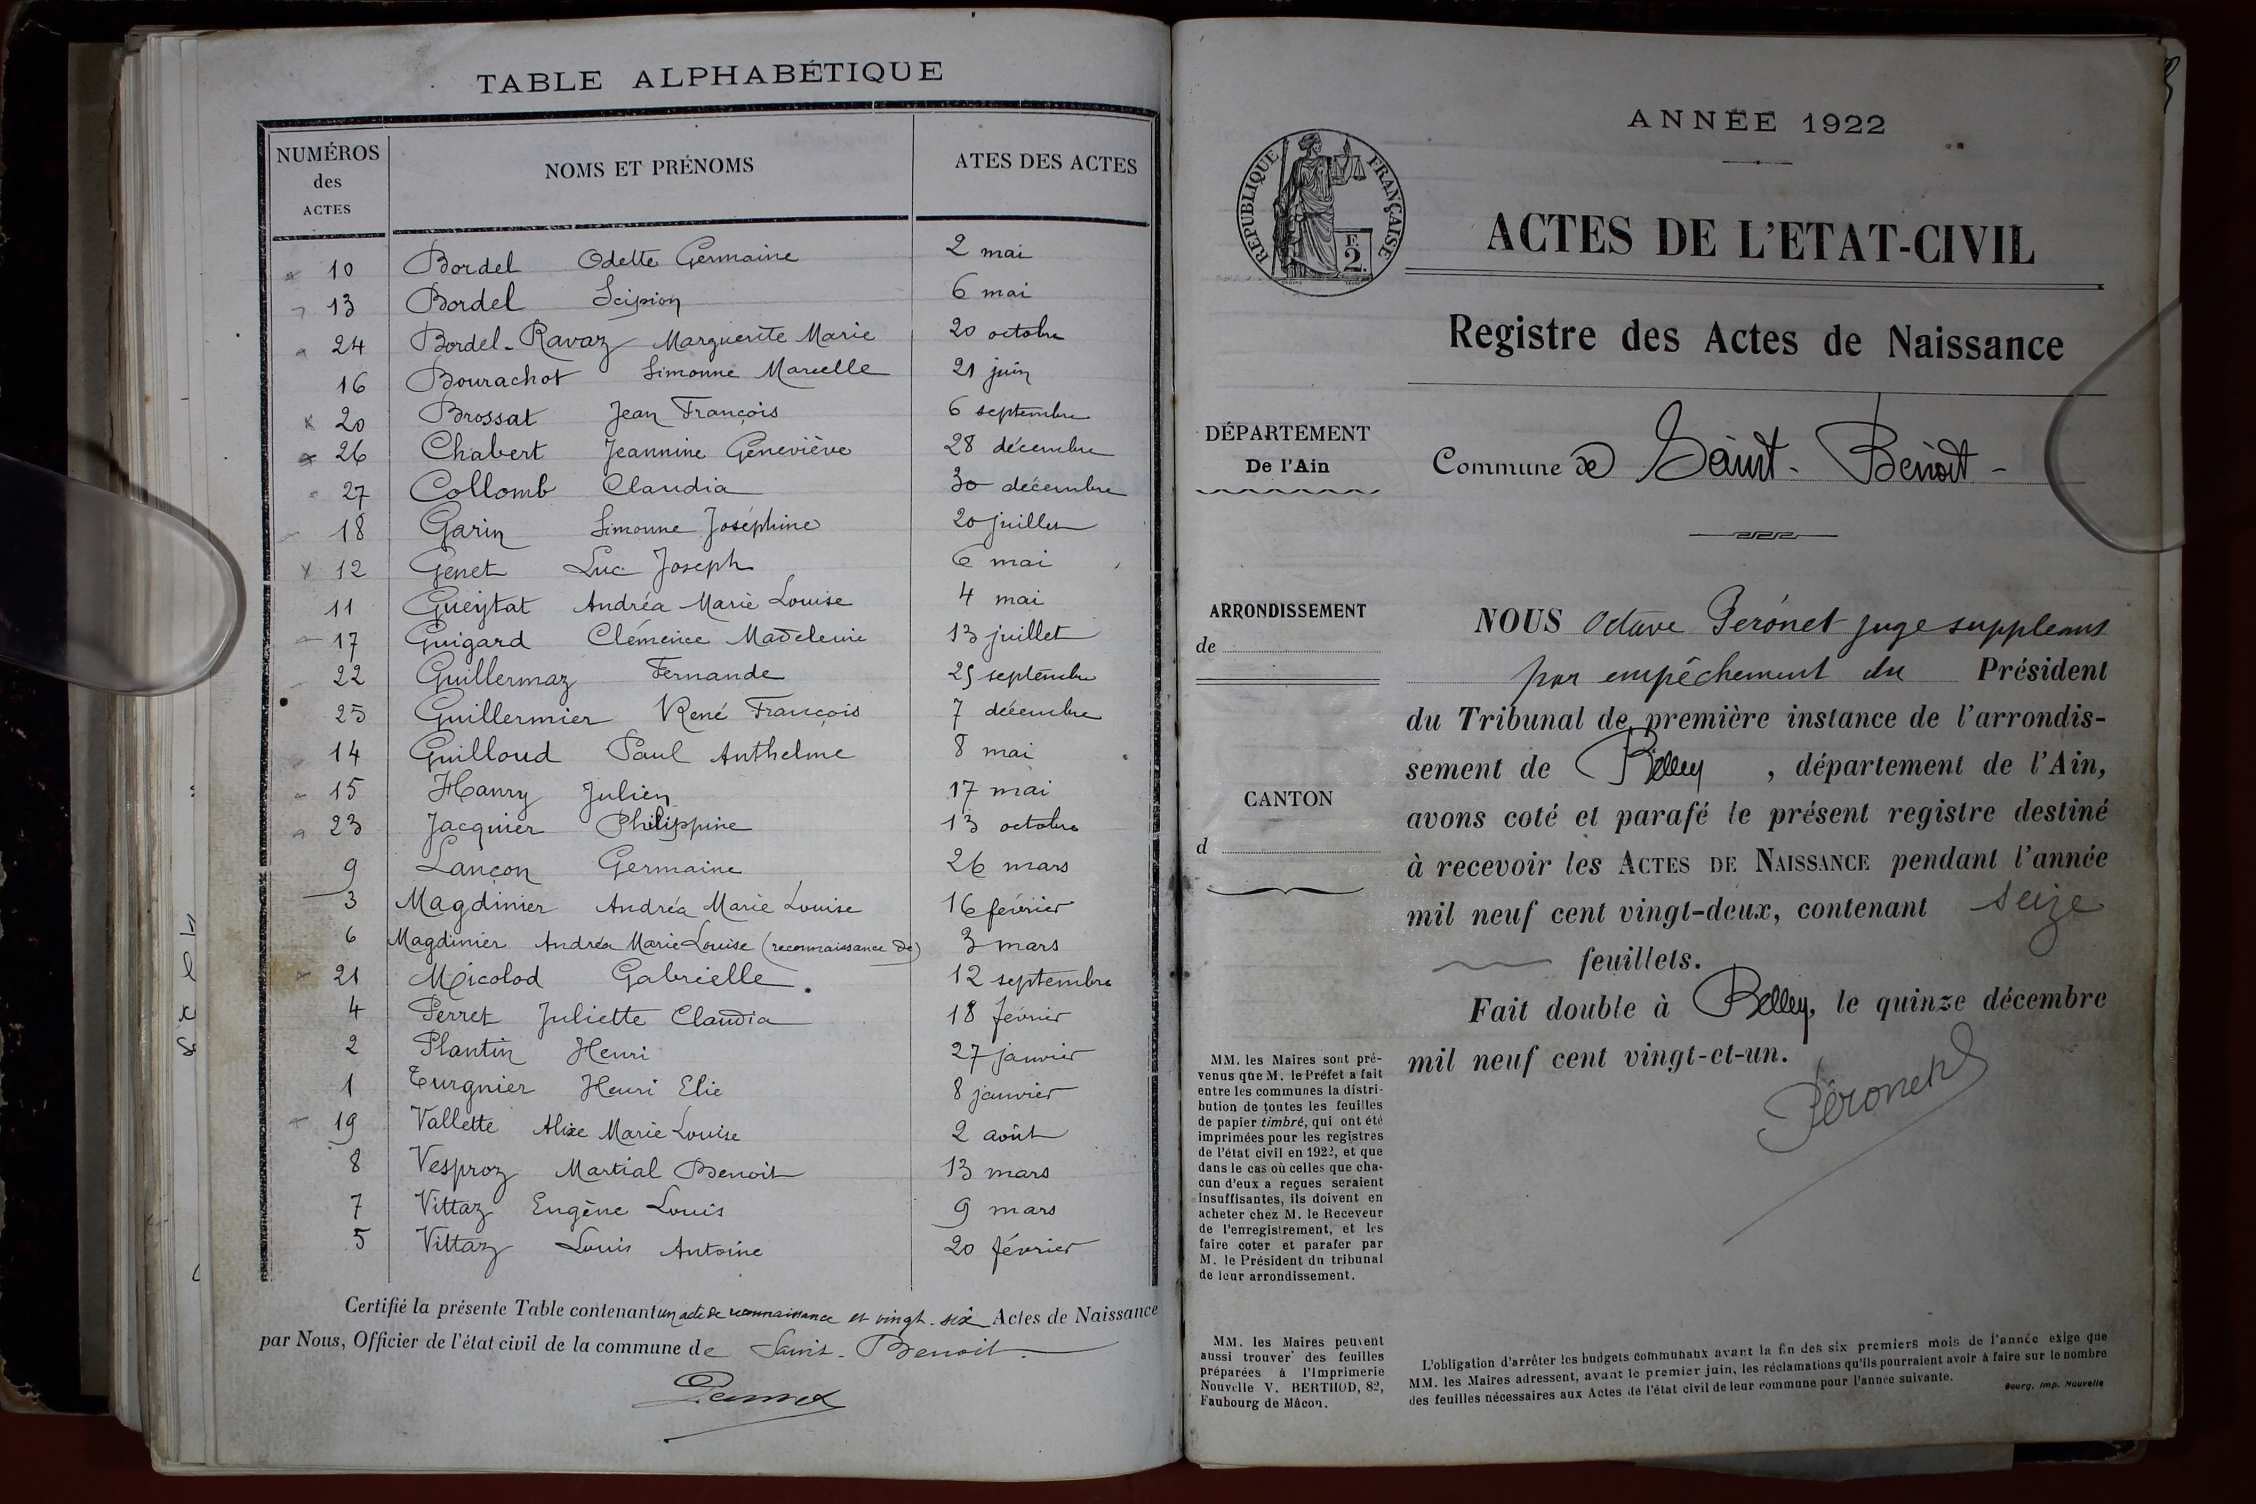 TABLE ALPHABÉTIQUE
NUMÉROS des ACTES
NOMS ET PRÉNOMS
ATES DES ACTES
10 Bordel Odette Germaine 2 mai
13 Bordel Scipion 6 mai
24 Bordel-Ravaz Marguerite Marie 20 octobre
16 Bourachot Simonne Marcelle 21 juin
20 Brossat Jean François 6 septembre
26 Chabert Jeannine Geneviève 28 décembre
27 Collomb Claudia 30 décembre
18 Garin Simonne Joséphine 20 juillet
12 Genet Luc Joseph 6 mai
11 Gueytat Andréa Marie Louise 4 mai
17 Guigard Clémence Madeleine 13 juillet
22 Guillermaz Fernande 25 septembre
25 Guillermier René François 7 décembre
14 Guilloud Paul Anthelme 8 mai
15 Hanry Julien 17 mai
23 Jacquier Philippine 13 octobre
9 Lançon Germaine 26 mars
3 Magdinier Andréa Marie Louise 16 février
6 Magdinier Andréa Marie Louise (reconnaissance de) 3 mars
21 Micolod Gabrielle 12 septembre
4 Perret Juliette Claudia 18 février
2 Plantin Henri 27 janvier
1 Turgnier Henri Elie 8 janvier
19 Vallette Alixe Marie Louise 2 août
8 Vesproz Martial Benoit 13 mars
7 Vittaz Eugène Louis 9 mars
5 Vittaz Louis Antoine 20 février
Certifié la présente Table contenant un acte de reconnaissance et vingt-six Actes de Naissance
par Nous, Officier de l'état civil de la commune de Saint-Benoit.
ANNÉE 1922
RÉPUBLIQUE FRANÇAISE
2
ACTES DE L'ETAT-CIVIL
Registre des Actes de Naissance
DÉPARTEMENT
De l'Ain
Commune de Saint-Benoit-
ARRONDISSEMENT
de
CANTON
d
NOUS Octave Peronet juge suppléant
par empêchement du Président
du Tribunal de première instance de l'arrondis-
sement de Belley, département de l'Ain,
avons coté et parafé le présent registre destiné
à recevoir les ACTES DE NAISSANCE pendant l'année
mil neuf cent vingt-deux, contenant seize
feuillets.
Fait double à Belley, le quinze décembre
mil neuf cent vingt-et-un.
Péronet
MM. les Maires sont pré-
venus que M. le Préfet a fait
entre les communes la distri-
bution de toutes les feuilles
de papier timbré, qui ont été
imprimées pour les registres
de l'état civil en 1922, et que
dans le cas où celles que cha-
cun d'eux a reçues seraient
insuffisantes, ils doivent en
acheter chez M. le Receveur
de l'enregistrement, et les
faire coter et parafer par
M. le Président du tribunal
de leur arrondissement.
MM. les Maires peuvent
aussi trouver des feuilles
préparées à l'Imprimerie
Nouvelle V. BERTHOD, 82,
Faubourg de Mâcon.
L'obligation d'arrêter les budgets communaux avant la fin des six premiers mois de l'année exige que
MM. les Maires adressent, avant le premier juin, les réclamations qu'ils pourraient avoir à faire sur le nombre
des feuilles nécessaires aux Actes de l'état civil de leur commune pour l'année suivante.
Bourg, Imp. Nouvelle